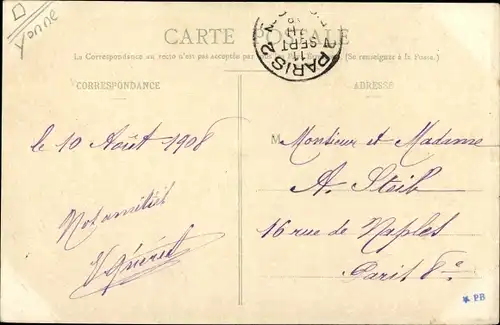 Yonne
CARTE POSTALE
La Correspondance au recto n'est pas acceptée par (Se renseigner à la Poste.)
CORRESPONDANCE
ADRESSE
PARIS 2
11
SEPT
le 10 Août 1908
M Monsieur et Madame
A. Steib
16 rue de Naples
Paris 8e
PB